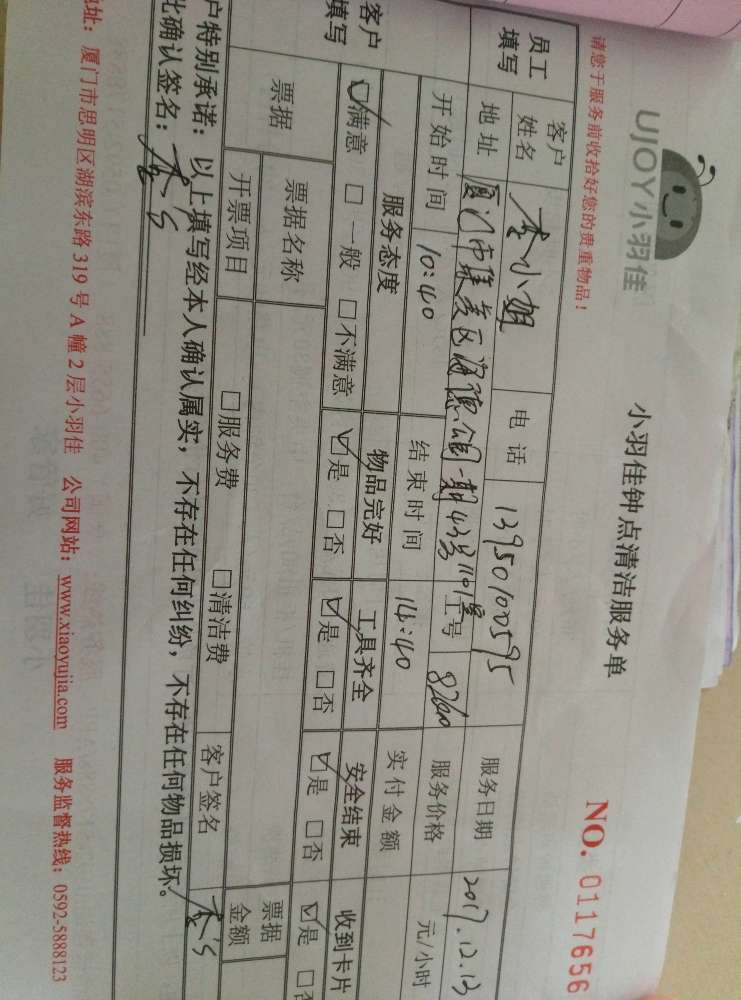 UJOY小羽佳
小羽佳钟点清洁服务单
NO. 0117656
请您于服务前收拾好您的贵重物品！
员工填写
客户姓名 李小姐 电话 13950100595 服务日期 2017.12.13
地址 厦门市集美区海德公馆一期43号1101室 工号 8260 服务价格 元/小时
开始时间 10:40 结束时间 14:40 实付金额
客户填写
服务态度 物品完好 工具齐全 安全结束 收到卡片
☑满意 □一般 □不满意 ☑是 □否 ☑是 □否 ☑是 □否 ☑是 □否
票据 票据名称 票据金额
开票项目 □服务费 □清洁费 客户签名 李's
户特别承诺：以上填写经本人确认属实，不存在任何纠纷，不存在任何物品损坏。
此确认签名：李's
地址：厦门市思明区湖滨东路319号A幢2层小羽佳 公司网站：www.xiaoyujia.com 服务监督热线：0592-5888123